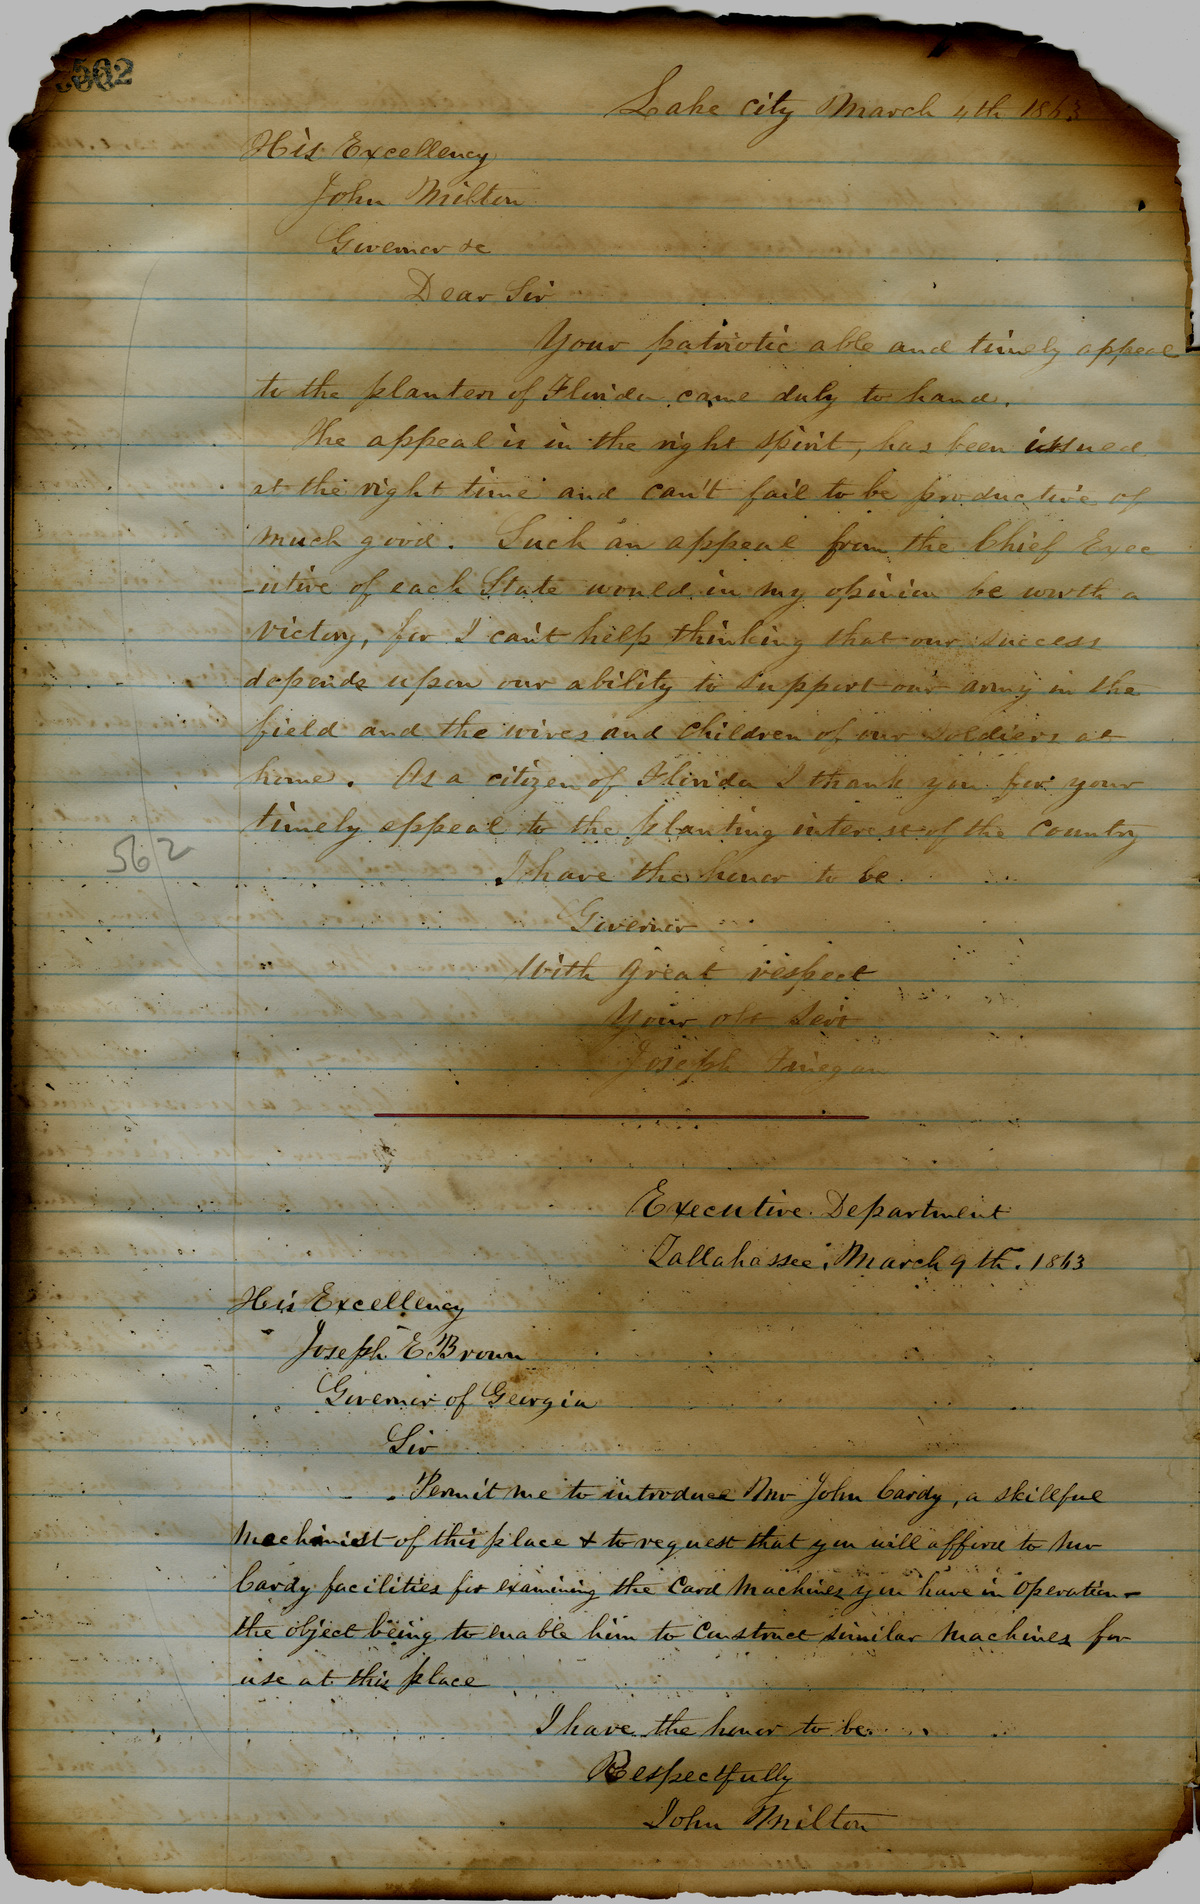 562
Lake City March 4th 1863
His Excellency
John Milton
Governor &c
Dear Sir
Your patriotic able and timely appeal
to the planters of Florida came duly to hand.
The appeal is in the right spirit, has been issued
at the right time and can't fail to be productive of
much good. Such an appeal from the Chief Exec
-utive of each State would in my opinion be worth a
victory, for I can't help thinking that our success
depends upon our ability to support our army in the
field and the wives and children of our soldiers at
home. As a citizen of Florida I thank you for your
timely appeal to the planting interest of the Country
562
I have the honor to be
Governor
With great respect
Your obt Servt
Joseph Finegan
Executive Department
Tallahassee, March 9th. 1863
His Excellency
Joseph E. Brown
Governor of Georgia
Sir
Permit me to introduce Mr John Cardy, a skillful
Machinist of this place & to request that you will afford to Mr
Cardy facilities for examining the Card Machines you have in operation-
the object being to enable him to Construct similar Machines for
use at this place
I have the honor to be
Respectfully
John Milton